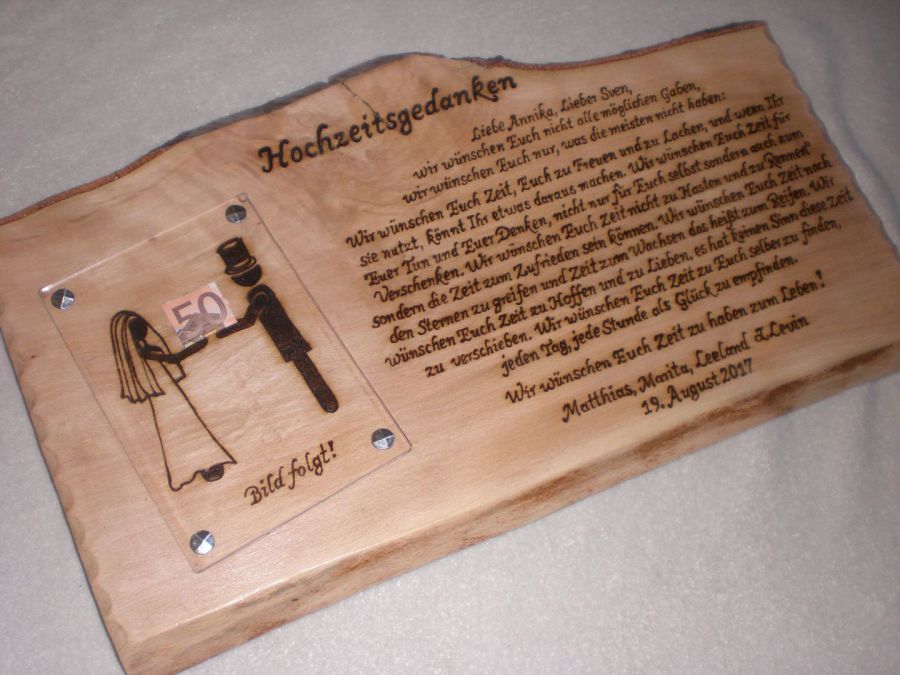 Hochzeitsgedanken
Liebe Annika, Lieber Sven,
wir wünschen Euch nicht alle möglichen Gaben,
wir wünschen Euch nur, was die meisten nicht haben:
Wir wünschen Euch Zeit, Euch zu Freuen und zu Lachen, und wenn Ihr
sie nutzt, könnt Ihr etwas daraus machen. Wir wünschen Euch Zeit für
Euer Tun und Euer Denken, nicht nur für Euch selbst sondern auch zum
Verschenken. Wir wünschen Euch Zeit nicht zu Hasten und zu Rennen
sondern die Zeit zum Zufrieden sein können. Wir wünschen Euch Zeit nach
den Sternen zu greifen und Zeit zum Wachsen das heißt zum Reifen. Wir
wünschen Euch Zeit zu Hoffen und zu Lieben, es hat keinen Sinn diese Zeit
zu verschieben. Wir wünschen Euch Zeit zu Euch selber zu finden,
jeden Tag, jede Stunde als Glück zu empfinden.
Wir wünschen Euch Zeit zu haben zum Leben!
Matthias, Marita, Leeland & Levin
19. August 2017
50
Bild folgt!